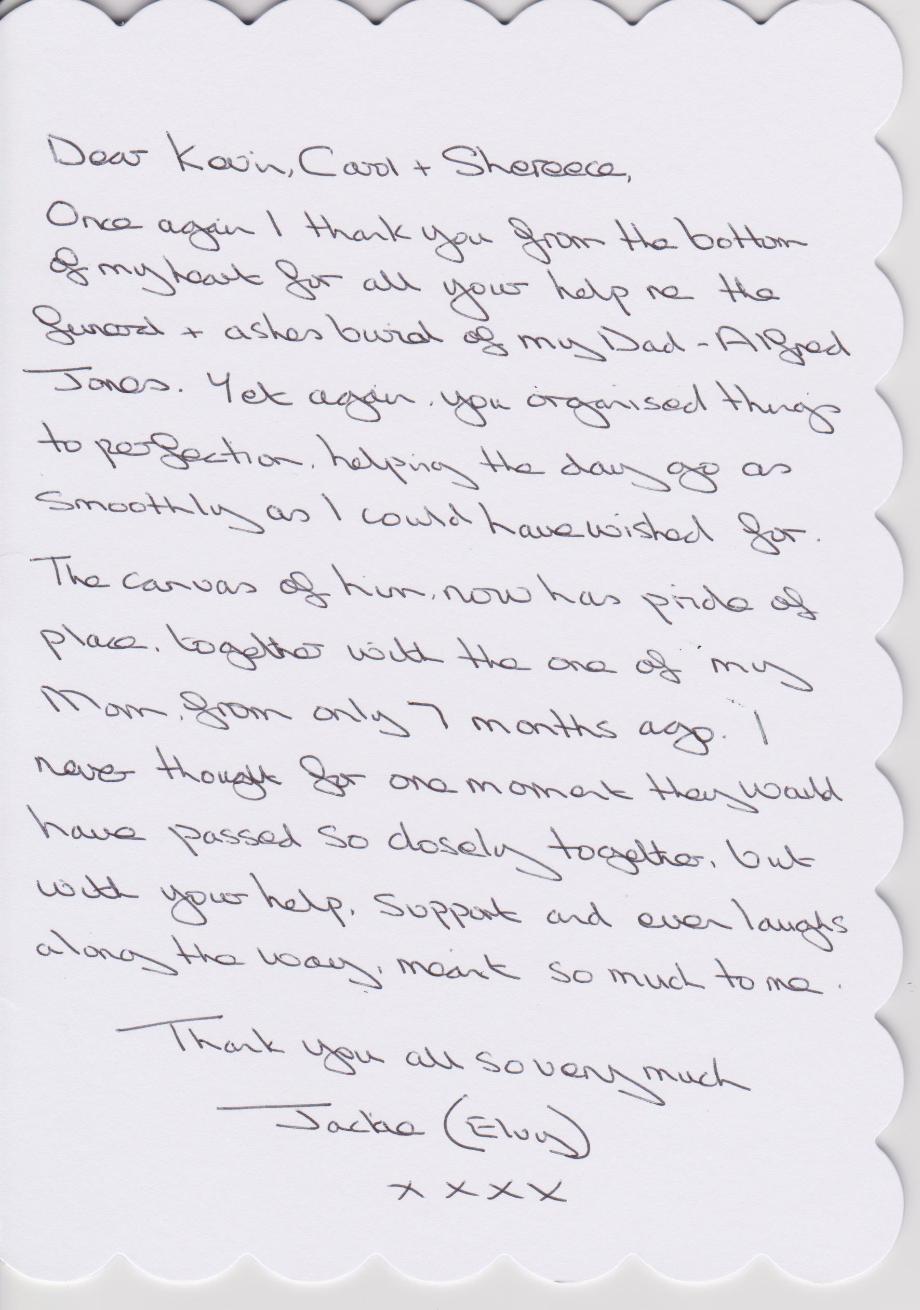 Dear Kevin, Carol + Shereece,
Once again I thank you from the bottom
of my heart for all your help re the
funeral + ashes burial of my Dad - Alfred
Jones. Yet again, you organised things
to perfection, helping the day go as
smoothly as I could have wished for.
The canvas of him, now has pride of
place, together with the one of my
Mom, from only 7 months ago. I
never thought for one moment they would
have passed so closely together, but
with your help, support and even laughs
along the way, meant so much to me.
Thank you all so very much
Jackie (Elvy)
x x x x